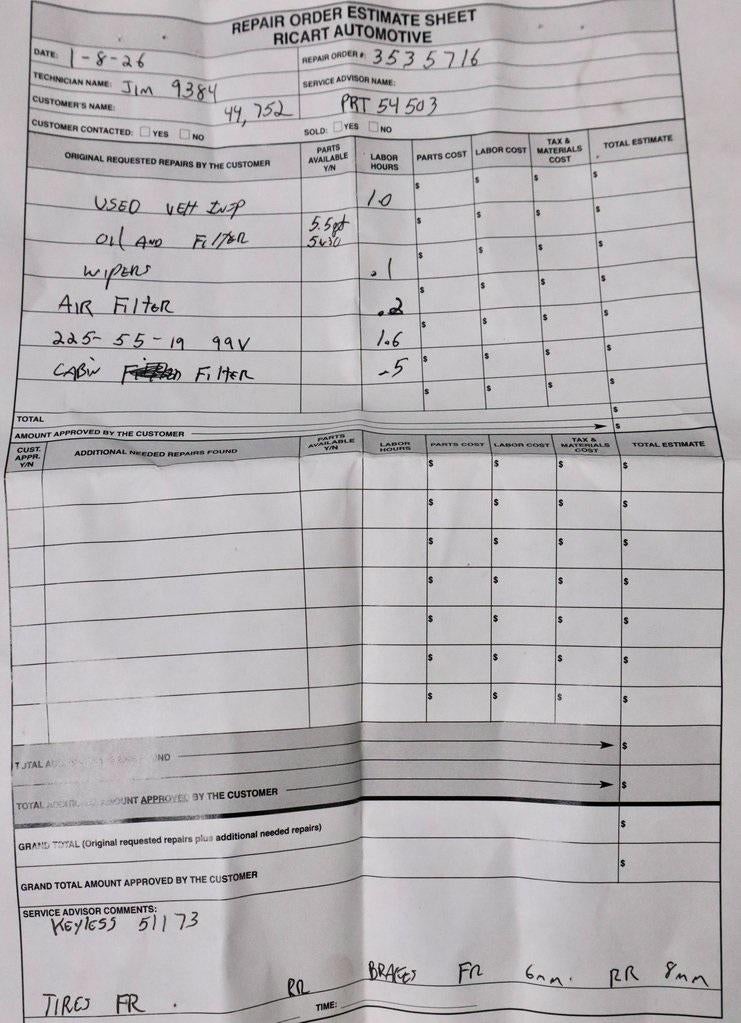 REPAIR ORDER ESTIMATE SHEET
RICART AUTOMOTIVE
DATE: 1-8-26
REPAIR ORDER #: 3535716
TECHNICIAN NAME: Jim 9384
SERVICE ADVISOR NAME:
CUSTOMER'S NAME: 44,752
PRT 54503
CUSTOMER CONTACTED: YES NO
SOLD: YES NO
ORIGINAL REQUESTED REPAIRS BY THE CUSTOMER PARTS AVAILABLE Y/N LABOR HOURS PARTS COST LABOR COST TAX & MATERIALS COST TOTAL ESTIMATE
$ $ $ $
USED VEH INSP 1.0 $ $ $ $
OIL AND FILTER 5.5qt 5w30 $ $ $ $
WIPERS .1 $ $ $ $
AIR FILTER .2 $ $ $ $
225-55-19 99V 1.6 $ $ $ $
CABIN FILTER .5 $ $ $ $
TOTAL $
AMOUNT APPROVED BY THE CUSTOMER $
CUST. APPR. Y/N ADDITIONAL NEEDED REPAIRS FOUND PARTS AVAILABLE Y/N LABOR HOURS PARTS COST LABOR COST TAX & MATERIALS COST TOTAL ESTIMATE
$ $ $ $
$ $ $ $
$ $ $ $
$ $ $ $
$ $ $ $
$ $ $ $
$ $ $ $
TOTAL $
TOTAL ADDITIONAL AMOUNT APPROVED BY THE CUSTOMER $
GRAND TOTAL (Original requested repairs plus additional needed repairs) $
GRAND TOTAL AMOUNT APPROVED BY THE CUSTOMER $
SERVICE ADVISOR COMMENTS:
KEYLESS 51173
TIRES FR . RR BRAKES FR 6mm. RR 8mm
TIME: